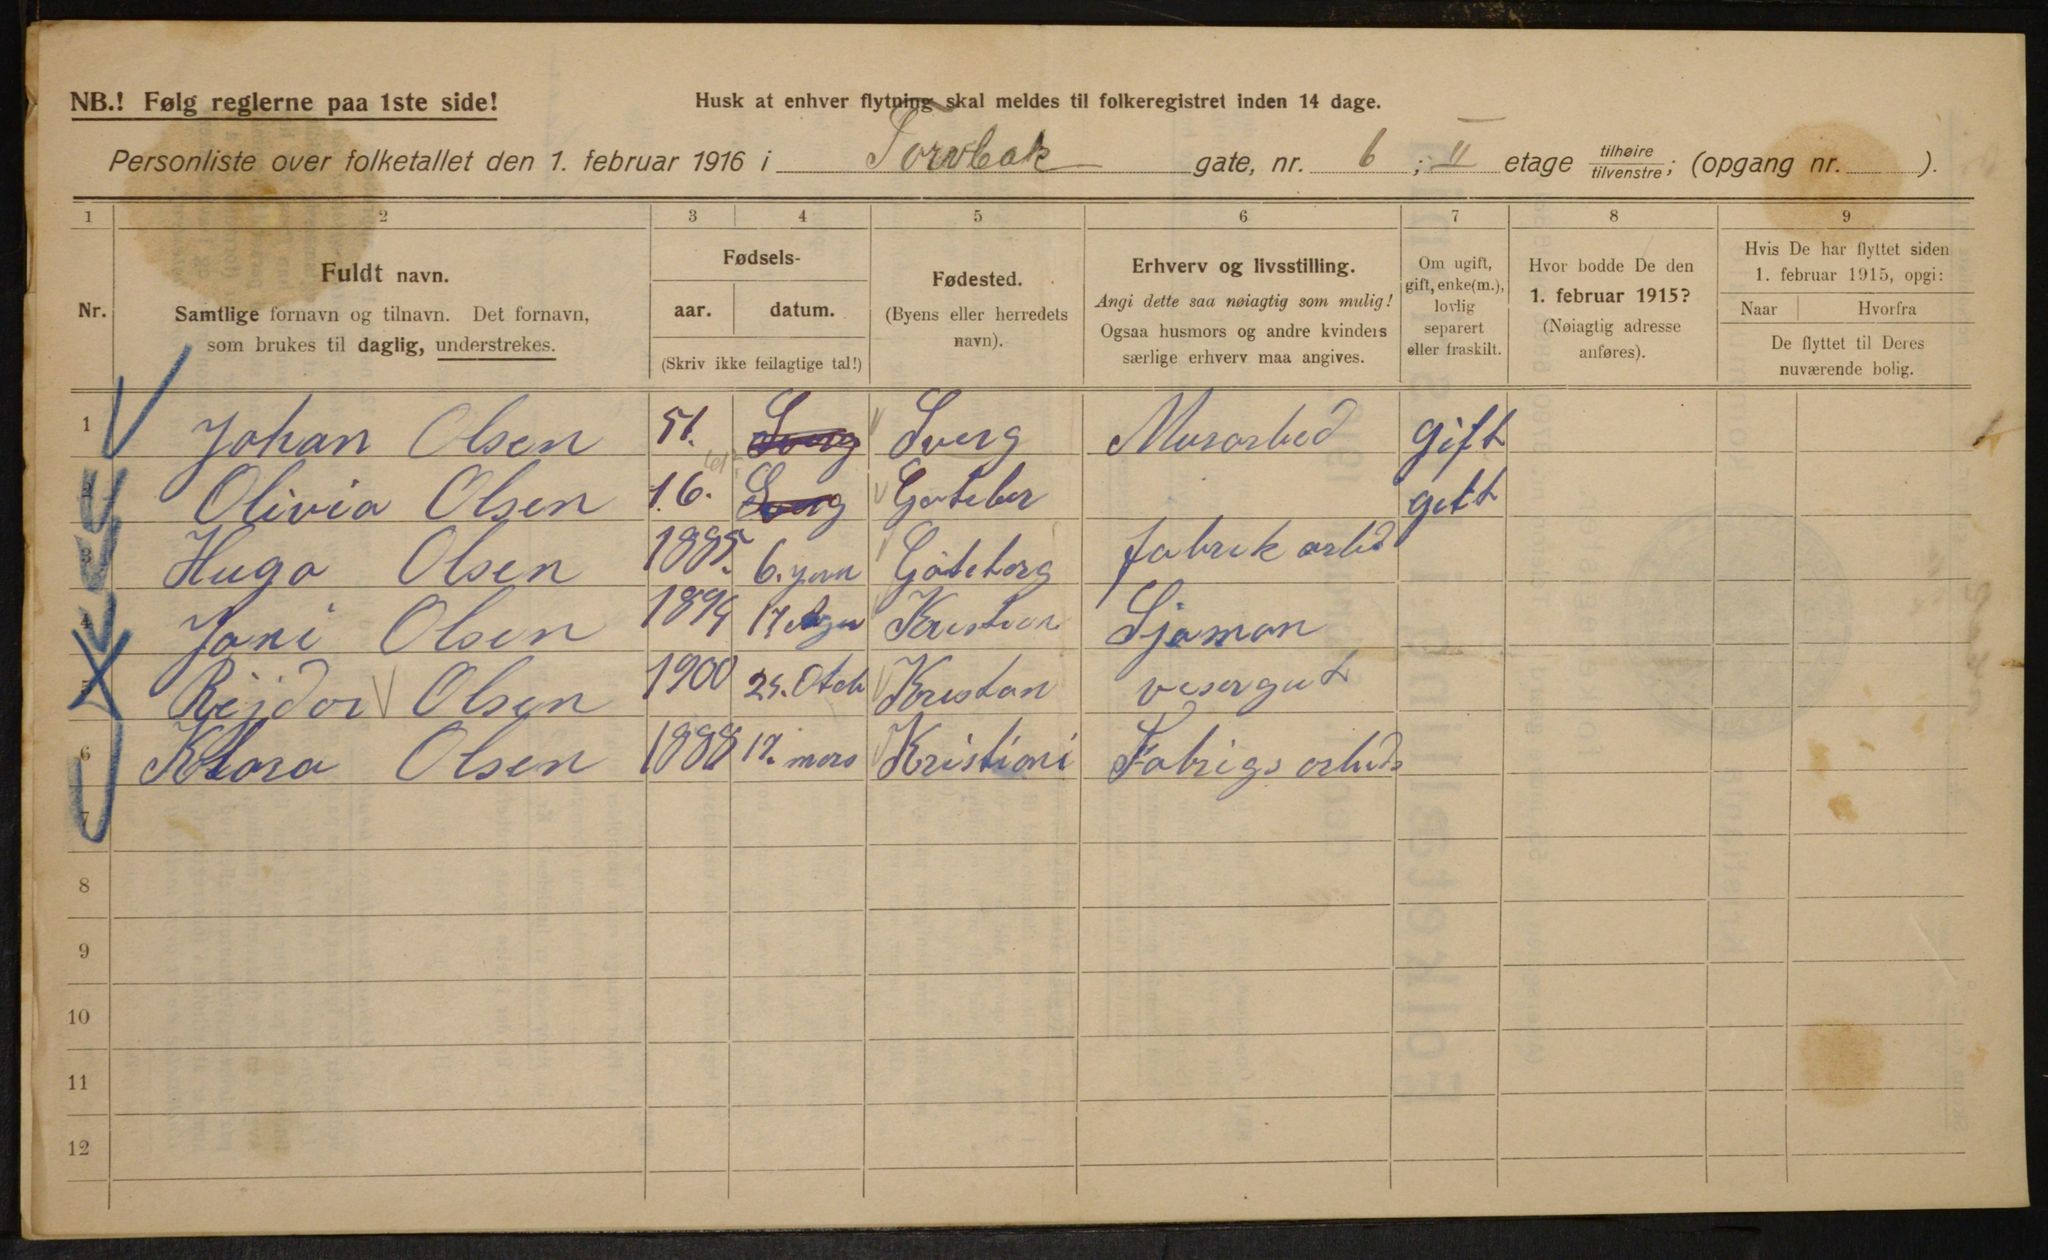 NB.! Følg reglerne paa 1ste side!
Husk at enhver flytning skal meldes til folkeregistret inden 14 dage.
Personliste over folketallet den 1. februar 1916 i Torvbak gate, nr. 6; II etage tilhøire/tilvenstre; (opgang nr. ).
1 2 3 4 5 6 7 8 9
Nr.
Fuldt navn.
Samtlige fornavn og tilnavn. Det fornavn,
som brukes til daglig, understrekes.
Fødsels-
aar. datum.
(Skriv ikke feilagtige tal!)
Fødested.
(Byens eller herredets
navn).
Erhverv og livsstilling.
Angi dette saa nøiagtig som mulig!
Ogsaa husmors og andre kvinders
særlige erhverv maa angives.
Om ugift,
gift, enke(m.),
lovlig
separert
eller fraskilt.
Hvor bodde De den
1. februar 1915?
(Nøiagtig adresse
anføres).
Hvis De har flyttet siden
1. februar 1915, opgi:
Naar Hvorfra
De flyttet til Deres
nuværende bolig.
1 Johan Olsen 51. Sverg Sverg Murarbed gift
2 Olivia Olsen 1.6. Sverg Goteber gift
3 Hugo Olsen 1885. 6. Göteborg fabrek arbed
4 Olsen 1894 17 Kristian Sjoman
5 Rejdor Olsen 1900 25. Otob Kristan visergut
6 Klara Olsen 1888 12. mars Kristiani Fabrigs arbeds
7
8
9
10
11
12